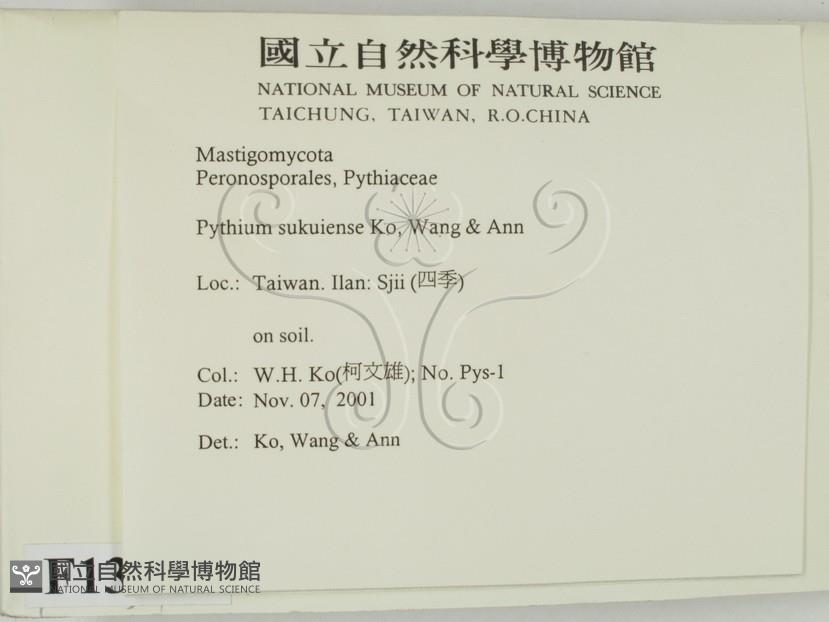 國立自然科學博物館
NATIONAL MUSEUM OF NATURAL SCIENCE
TAICHUNG, TAIWAN, R.O.CHINA
Mastigomycota
Peronosporales, Pythiaceae
Pythium sukuiense Ko, Wang & Ann
Loc.: Taiwan. Ilan: Sjii (四季)
on soil.
Col.: W.H. Ko(柯文雄); No. Pys-1
Date: Nov. 07, 2001
Det.: Ko, Wang & Ann
F13
國立自然科學博物館
NATIONAL MUSEUM OF NATURAL SCIENCE